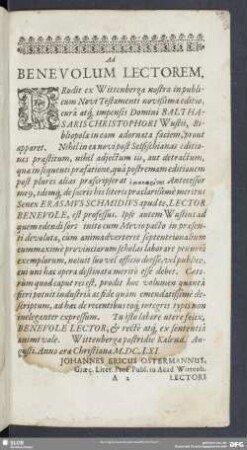 Ad
BENEVOLUM LECTOREM.
PRodit ex Wittenberga nostra in publi-
cum Novi Testamenti novissima editio,
curâ atq; impensis Domini BALTHA-
SARIS CHRISTOPHORI Wustii, Bi-
bliopolæ in eam adornata faciem, prout
apparet. Nihil in ea novi post Setsschianas editio-
nes præstitum, nihil adjectum iis, aut detractum,
qua in sequenti præfatione, quâ postremam editionem
post plures alias præscripserat Antecessor
meus, idemq; de sacris & literis præclarissimè meritus
Senex ERASMUS SCHMIDIUS apud te, LECTOR
BENEVOLE, est professus. Ipse autem Wustius ad
quem edendi ista
devoluta, cùm animadverteret septentrionalium
quam maximè provinciarum scholas laborare penuriâ
exemplorum, noluit suo vel officio deesse, vel publico,
cui uns hæc opera destinata meritò esse debet. Cæte-
rùm quod caput rei est, prodit hoc volumen quantâ
fieri potuit industriâ at fide quàm emendatissimè de-
scriptum, ad hæc de recentibus typis integris typis non
ineleganter expressum. Tu isto labore utere felix,
BENEVOLE LECTOR, & rectè atq; ex sententiâ
animi vale. Wittenberga postridie Kalend. Au-
gusti. Anno æra Christiana M.DC.LXI.
JOHANNES ERICUS OSTERMANNUS,
Græc. Liter. Prof. Publ. in Acad. Witteeb.
A 2 LECTORI
SLUB